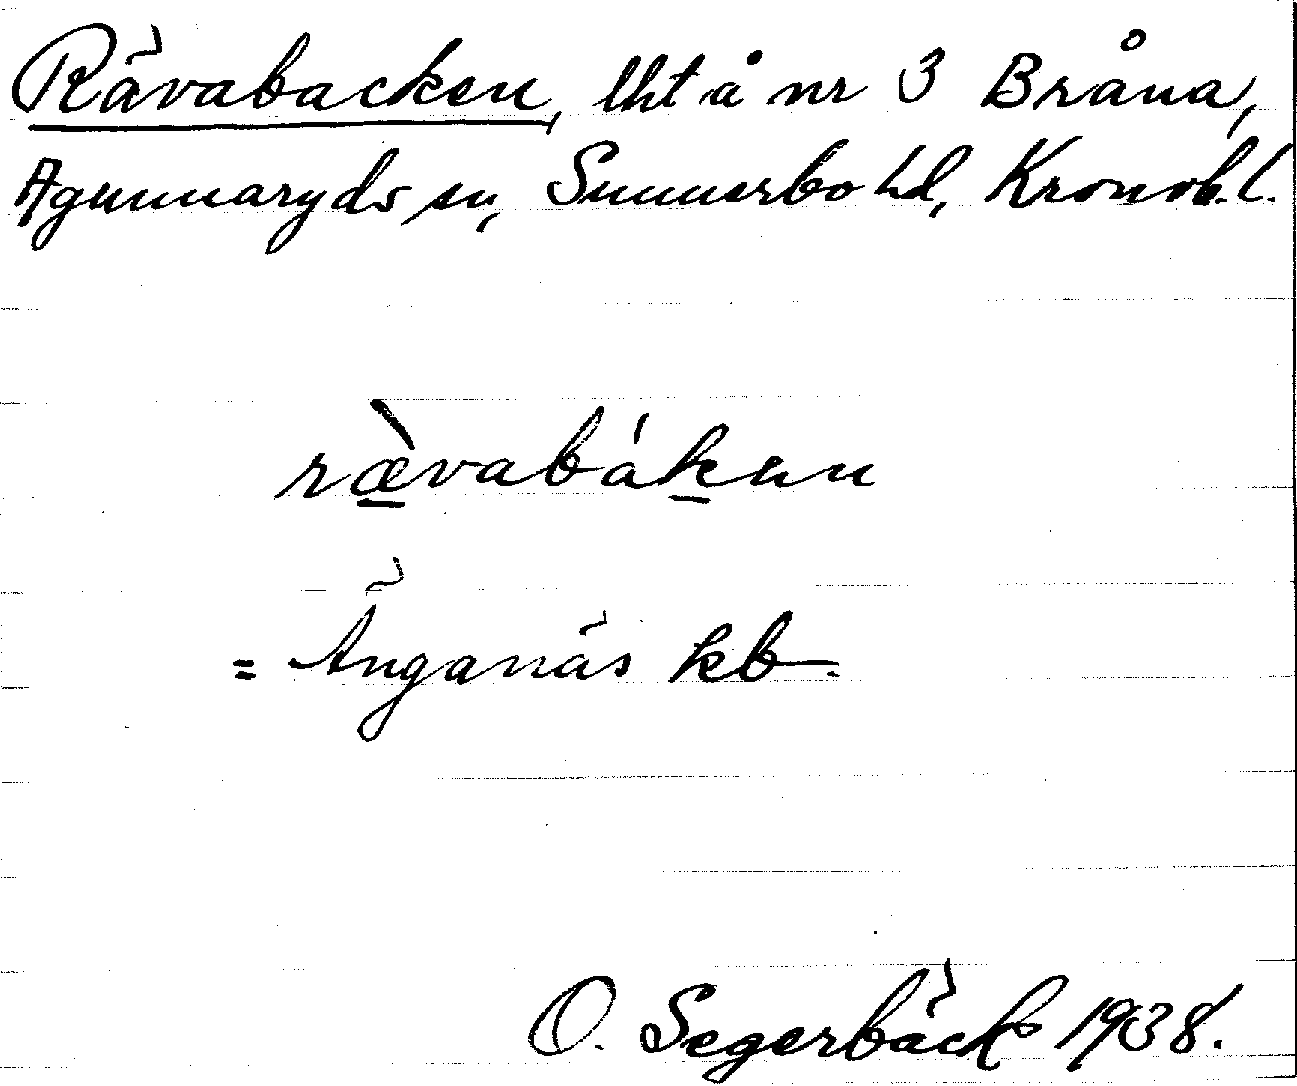 Rävabacken, lht å nr 3 Bråna,
Agunnaryds sn, Sunnerbo hd, Kronob.l.
ræ̀vabákan
= Änganäs kb.
O. Segerbäck 1938.